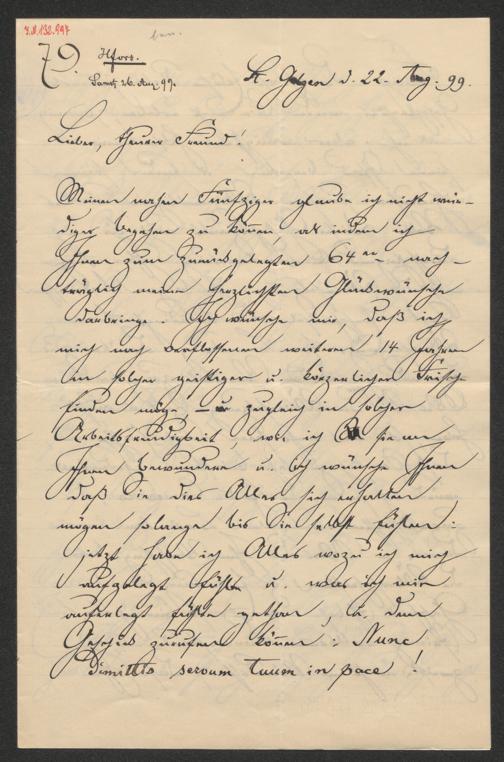 I.N. 132.997
79.
Samst. 26. Aug. 99.
St. Gilgen d. 22. Aug. 99.
Lieber, theurer Freund!
Meinen nahen Fünfziger glaube ich nicht wür-
diger begehen zu können, als indem ich
Ihnen zum zurückgelegten 64er nach-
träglich meine herzlichsten Glückwünsche
darbringe. Ich wünsche mir, daß ich
mich nach verflossenen weiteren 14 Jahren
in solcher geistiger u. körperlicher Frische
finden möge, – u zugleich in solcher
Arbeitsfreudigkeit, wie ich sie an
Ihnen bewundere u. ich wünsche Ihnen
daß Sie dies Alles sich erhalten
mögen solange bis Sie selbst fühlen:
jetzt habe ich Alles wozu ich mich
aufgelegt fühlte u. was ich mir
auferlegt fühlte gethan, u. dem
Geschick zurufen können: Nunc
Dimittis servum tuum in pace!